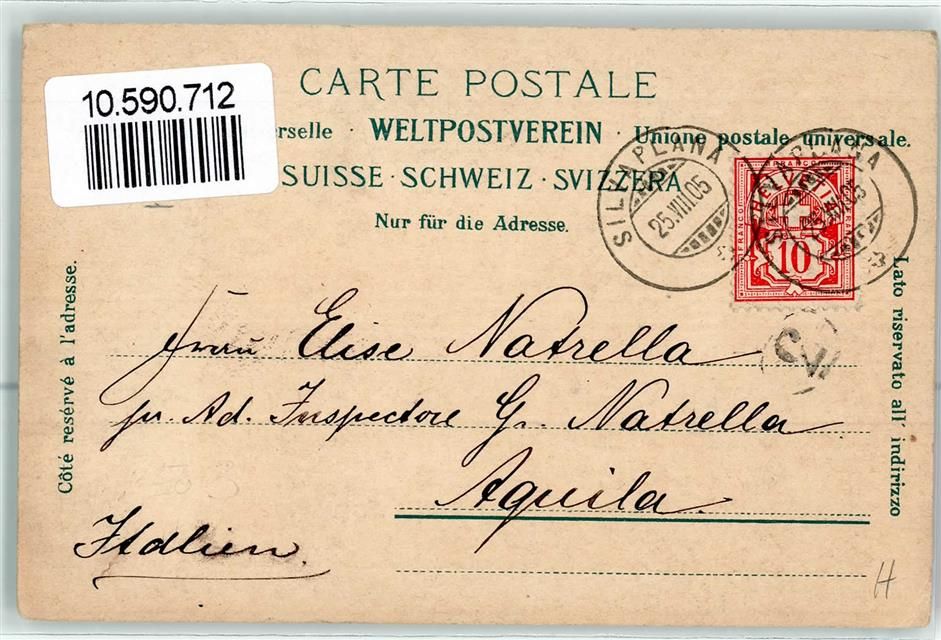 10.590.712
CARTE POSTALE
erselle · WELTPOSTVEREIN · Unione postale universale.
SUISSE · SCHWEIZ · SVIZZERA
Nur für die Adresse.
SILVAPLANA
25.VIII.05
SILVAPLANA
FRANCO
HELVETIA
10
Côté resérvé à l'adresse.
Lato riservato all' indirizzo
Frau Elise Natrella
Ad. Inspectore G. Natrella
Aquila.
Italien
H